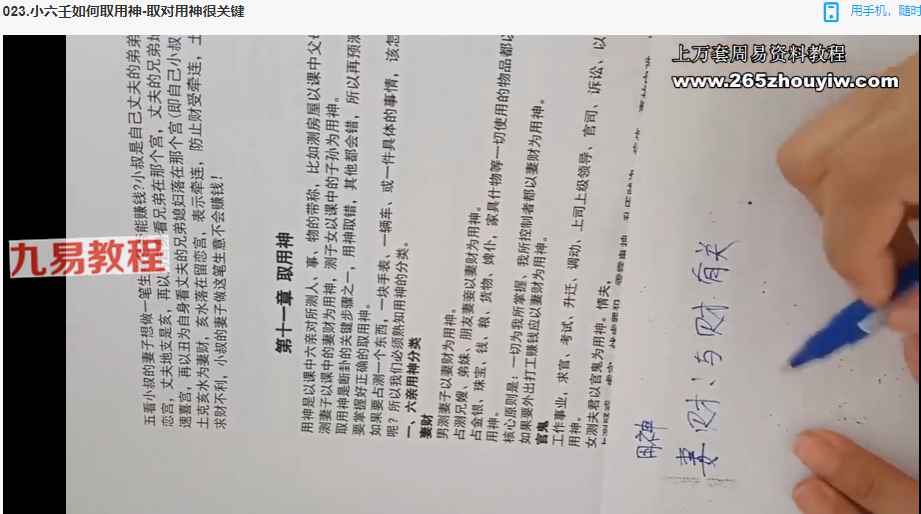 023.小六壬如何取用神-取对用神很关键
用手机，随时
上万套周易资料教程
www.265zhouyiw.com
九易教程
五看小叔的妻子想做一笔生
能赚钱?小叔是自己丈夫的弟弟
恋宫，丈夫地支是亥，再以
看兄弟在那个宫，丈夫的兄弟地
速喜宫，再以丑为自身看丈夫的兄弟媳妇落在那个宫(即自己小叔
土克亥水为妻财，亥水落在留恋宫，表示牵连，防止财受牵连，土
求财不利，小叔的妻子做这笔生意不会赚钱!
第十一章 取用神
用神是以课中六亲对所测人、事、物的带称，比如测房屋以课中父
测妻子以课中的妻财为用神，测子女以课中的子孙为用神。
取用神是断卦的关键步骤之一，用神取错，其他都会错，所以再预测
要掌握好正确的取用神。
如果要占测一个东西，一块手表、一辆车、或一件具体的事情，该怎
呢？所以我们必须熟知用神的分类。
一、六亲用神分类
妻财
男测妻子以妻财为用神。
占测兄嫂、弟妹、朋友妻妾以妻财为用神。
占金银、珠宝、钱、粮、货物、婢仆，家具什物等一切使用的物品都以
用神。
核心原则是：一切为我所掌握、我所控制者都以妻财为用神。
如果要外出打工赚钱应以妻财为用神。
官鬼
工作事业，求官、考试、升迁、调动、上司上级领导、官司、诉讼、以
用神。
女测夫君以官鬼为用神。情夫、
用神
妻财：与财有关